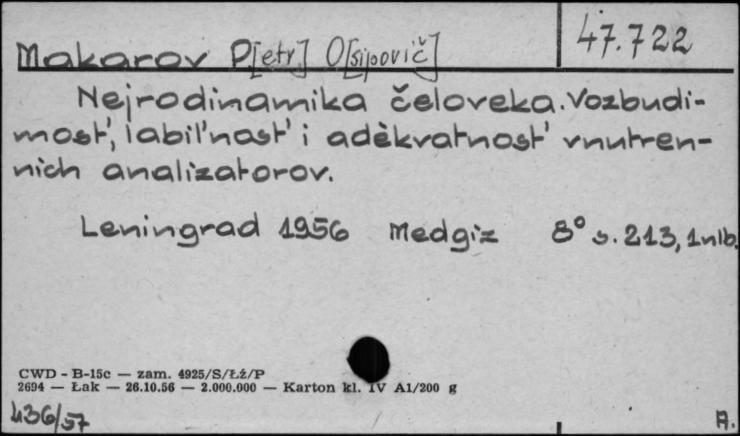 47.722
Makarov P[etr] O[sipovič]
Nejrodinamika čeloveka. Vozbudi-
most', labil'nost' i adèkvatnost' vnutren-
nich analizatorov.
Leningrad 1956 Medgiz 8° s. 213, 1 nlb.
CWD - B-15c — zam. 4925/S/Łź/P
2694 — Łak — 26.10.56 — 2.000.000 — Karton kl. IV A1/200 g
436/57
A.